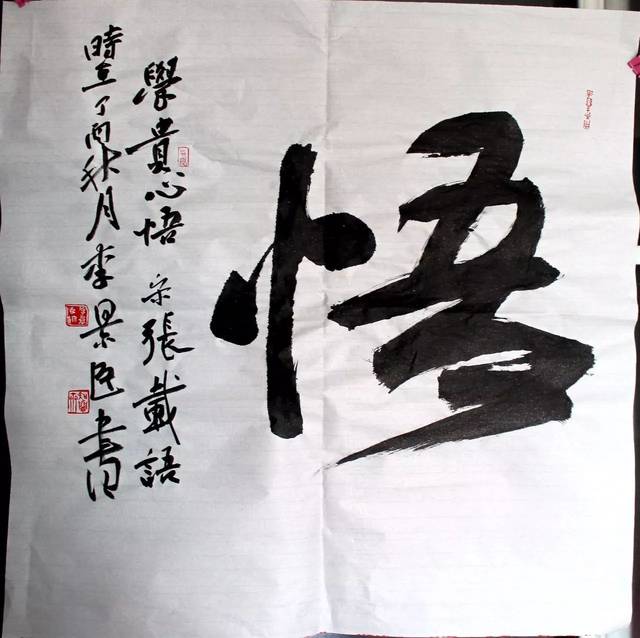 悟
學貴心悟 宋張載語
時在丁酉秋月李景臣書